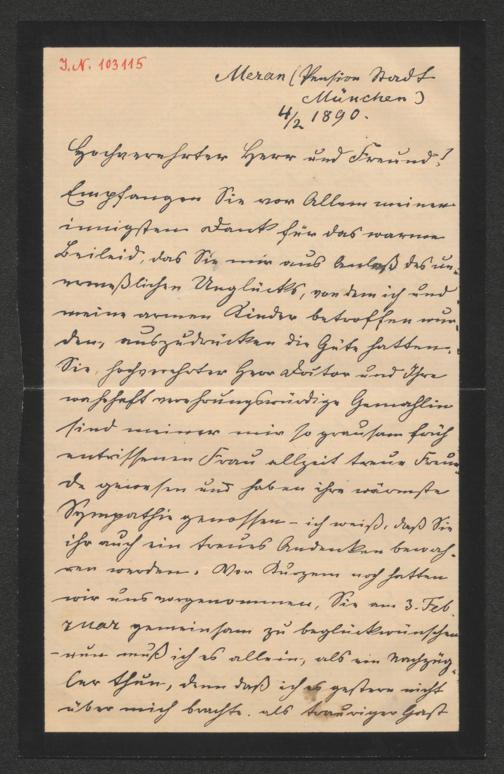 J.N. 103115
Meran (Pension Stadt
München)
4/2 1890.
Hochverehrter Herr und Freund!
Empfangen Sie vor Allem meinen
innigsten Dank für das warme
Beileid, das Sie mir aus Anlaß des un-
ermeßlichen Unglücks, von dem ich und
meine armen Kinder betroffen wur-
den, auszudrücken die Güte hatten.
Sie, hochverehrter Herr Doktor und Ihre
wahrhaft verehrungswürdige Gemahlin
sind meiner mir so grausam früh
entrissenen Frau allzeit treue Freun-
de gewesen und haben ihre wärmste
Sympathie genossen – ich weiß, daß Sie
ihr auch ein treues Andenken bewah-
ren werden. Vor Kurzem noch hatten
wir uns vorgenommen, Sie am 3. Feb-
ruar gemeinsam zu beglückwünschen
– nun muß ich es allein, als ein Nachzüg-
ler thun, denn daß ich es gestern nicht
über mich brachte, als trauriger Gast